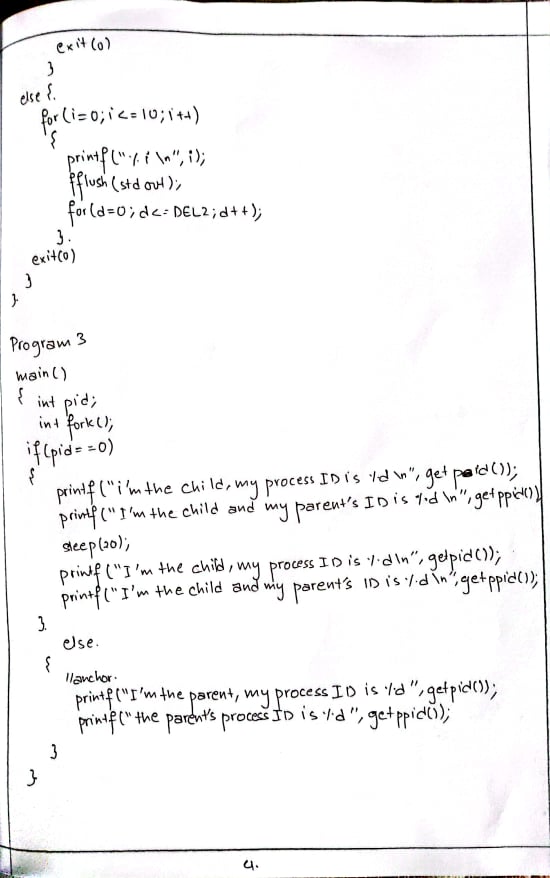 exit(0)
}
else {.
for(i=0;i<=10;i++)
{
printf("%i \n", i);
fflush(stdout);
for(d=0;d<=DEL2;d++);
}.
exit(0)
}
}
Program 3
main()
{ int pid;
int fork();
if(pid==0)
{
printf("i'm the child, my process ID is %d \n", getpid());
printf("I'm the child and my parent's ID is %d \n", getppid())
sleep(20);
printf("I'm the child, my process ID is %d\n", getpid());
printf("I'm the child and my parent's ID is %d \n", getppid());
}.
else.
{
//anchor.
printf("I'm the parent, my process ID is %d", getpid());
printf("the parent's process ID is %d", getppid());
}
}
4.